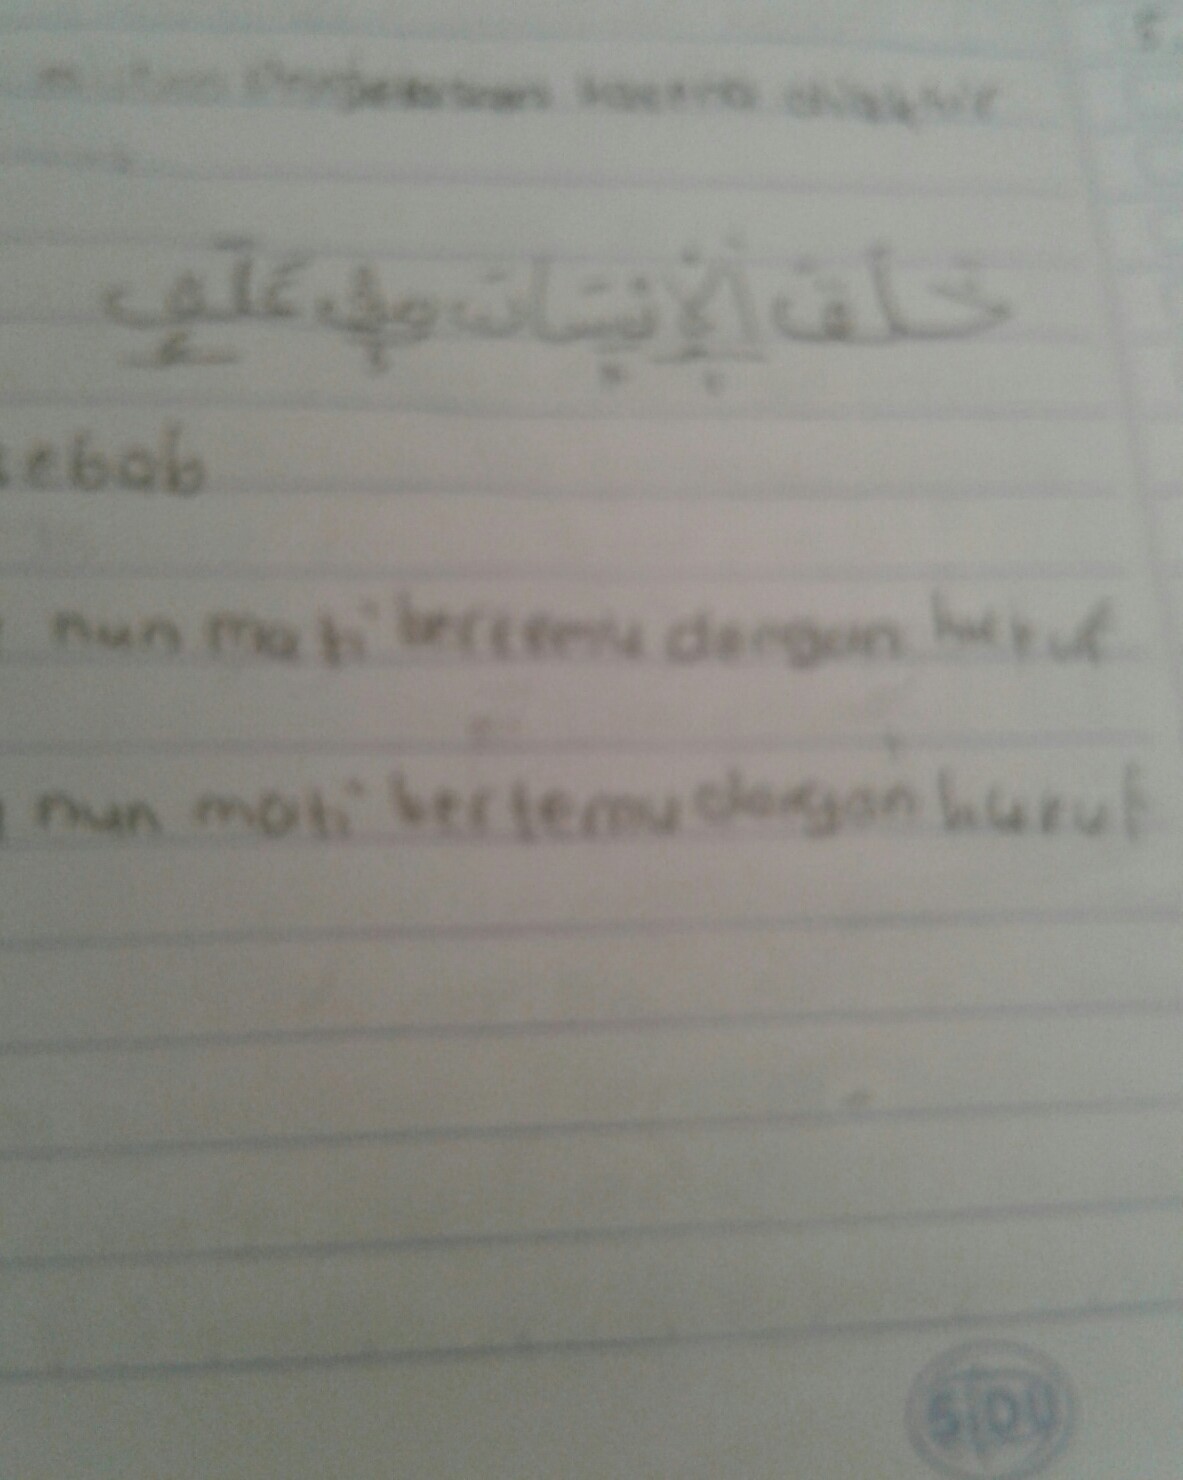 5.
karena diakhir
خَلَقَ الْإِنْسَانَ مِنْ عَلَقٍ
sebab
nun mati bertemu dengan huruf
nun mati bertemu dengan huruf
SIDU